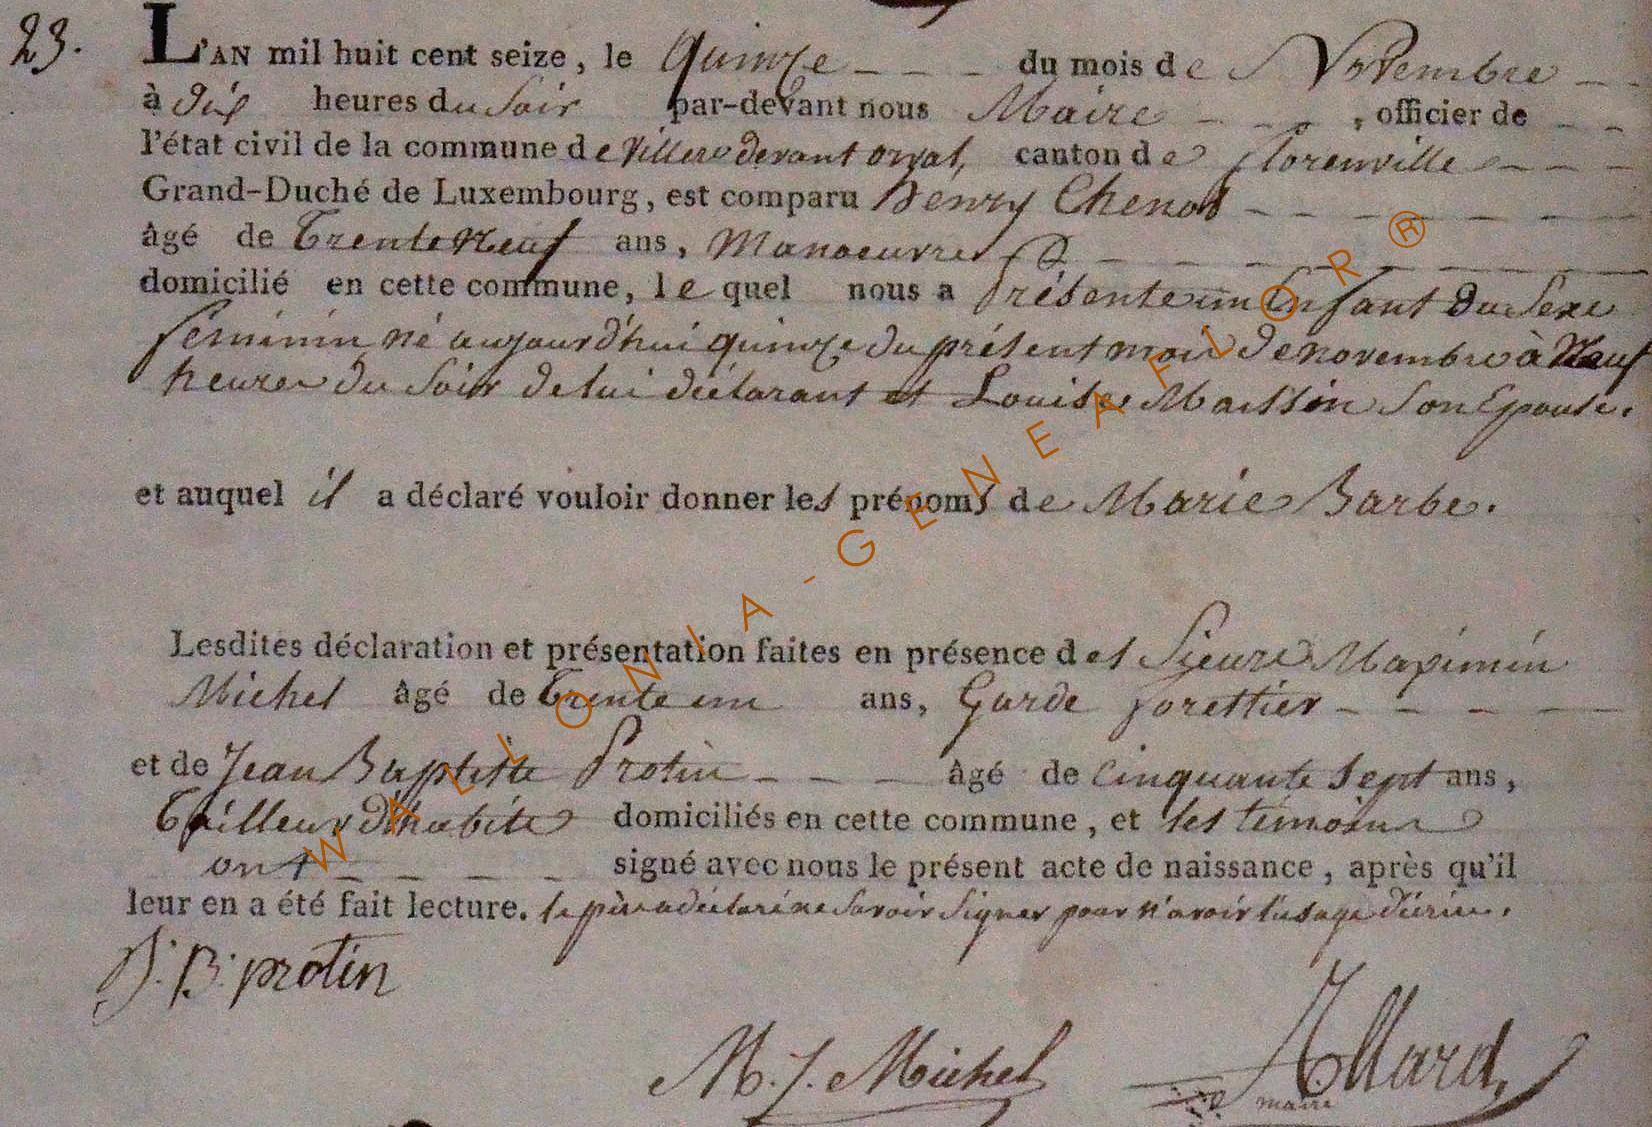 23.
L'AN mil huit cent seize, le quinze - - - du mois de Novembre - -
à dix heures du soir par-devant nous Maire - - - , officier de - -
l'état civil de la commune de Villers devant orval, canton de florenville - - -
Grand-Duché de Luxembourg, est comparu henry Chenot - - - - - -
âgé de trente neuf ans, Manoeuvre - - - - - -
domicilié en cette commune, lequel nous a présenté un Enfant du Sexe
feminin né aujourd'hui quinze du présent mois de novembre à Neuf
heures du Soir de lui déclarant et Louise Massin son Epouse.
et auquel il a déclaré vouloir donner les prénoms de Marie Barbe.
Lesdites déclaration et présentation faites en présence des Sieurs Maximin
Michel âgé de trente un ans, Garde forettier - - - -
et de Jean Baptiste Protin - - - âgé de cinquante sept ans,
tailleur d'habits domiciliés en cette commune, et les témoins
ont - - - - - signé avec nous le présent acte de naissance, après qu'il
leur en a été fait lecture. le père a déclaré ne savoir signer pour n'avoir l'usage d'écrire.
J. B. protin
M. J. Michel
Allard,
maire
WALLONIA-GENEAFLOR®